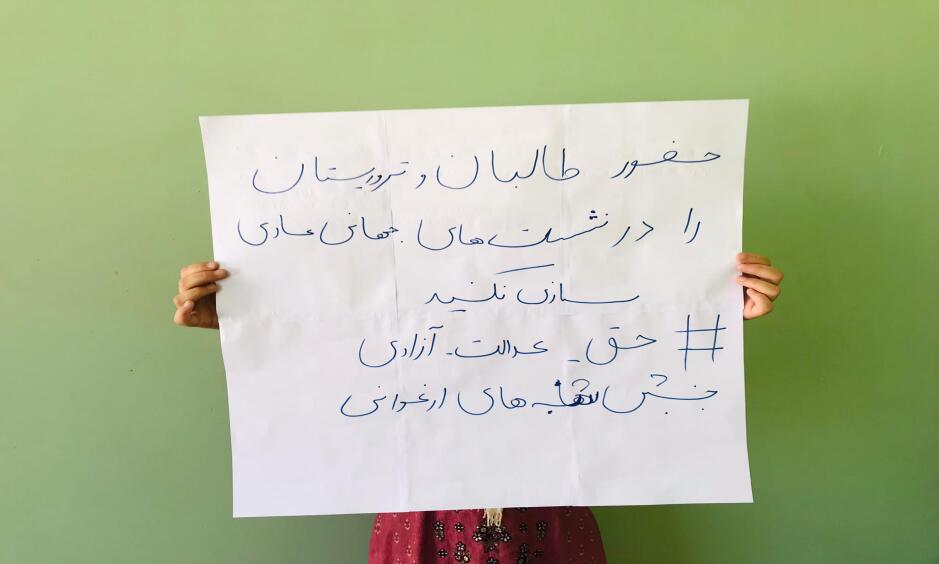 حضور طالبان و تروریستان
را در نشست های جهانی عادی
سازی نکنید
# حق_عدالت_آزادی
جنبش های ارغوانی